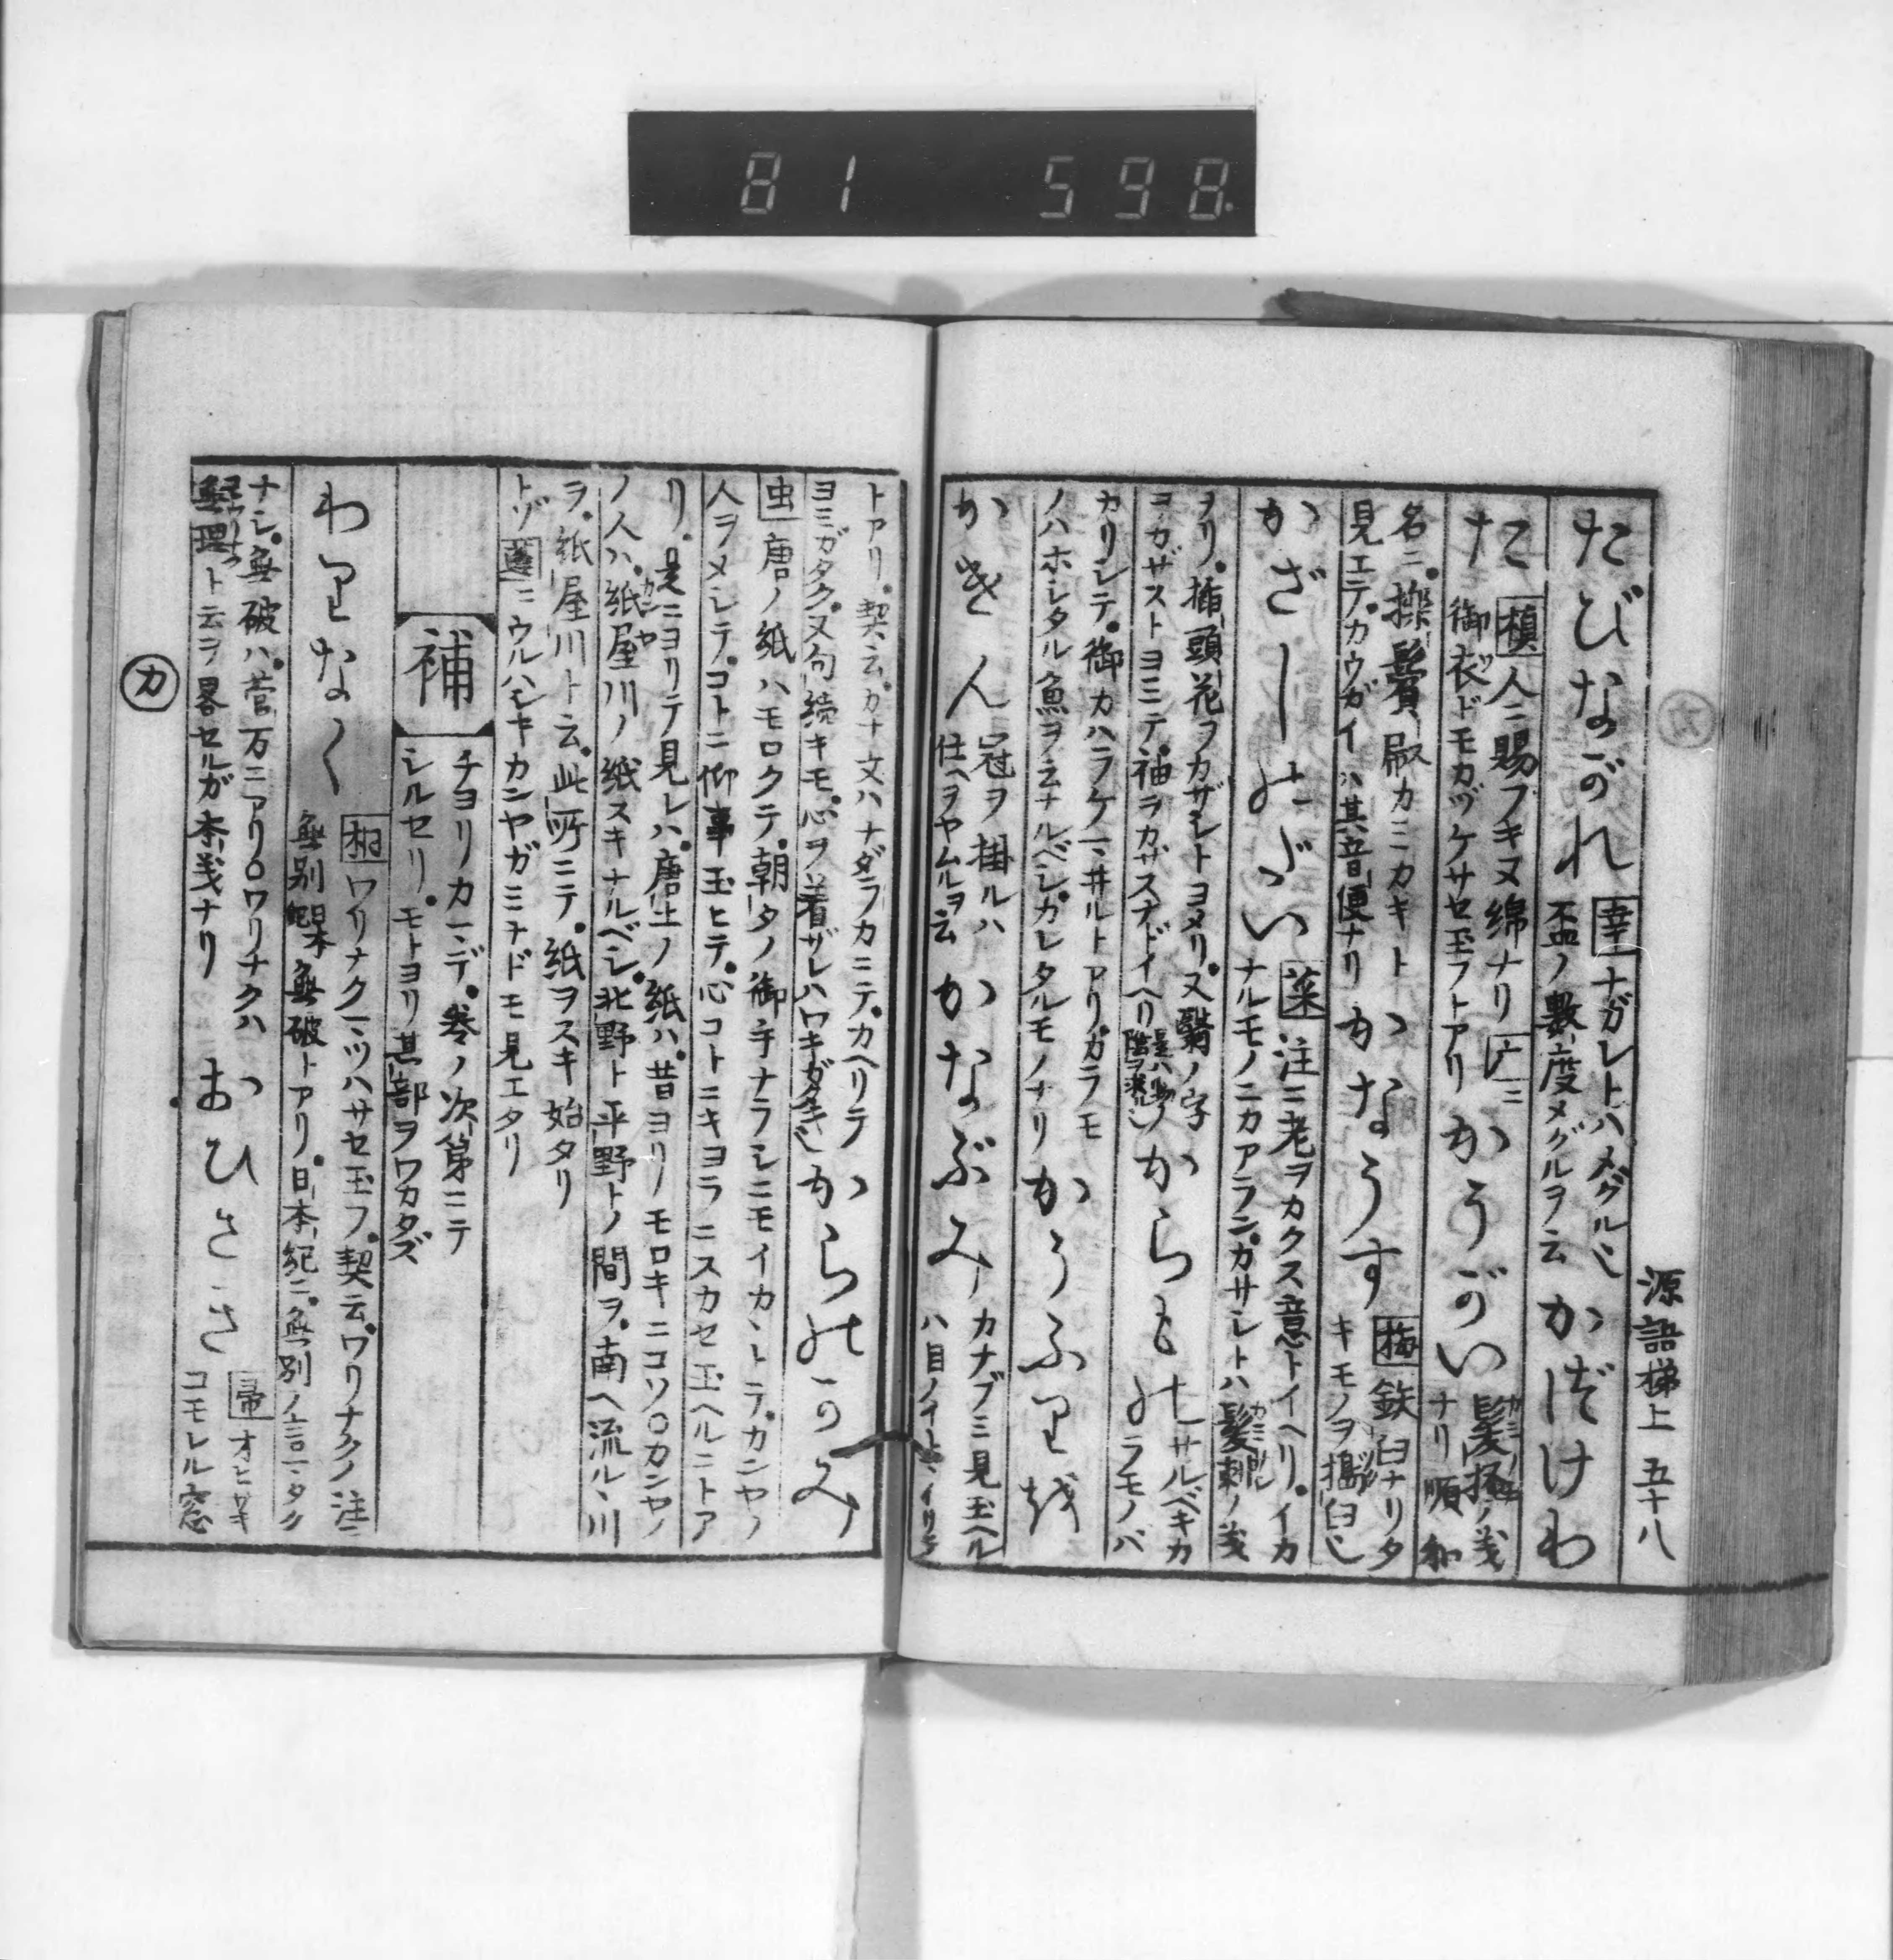 81 598
源語梯上 五十八
たびながれ
幸 ナガレトハメグル也
盃ノ数度メグルヲ云
かづけわ
た
槙 人ニ賜フキヌ綿ナリ
御衣ドモカヅケサセ玉フトアリ
かうがい
髪掻ノ義
ナリ順和
名ニ
鬢
カミカキト
見エテカウガイハ其音便ナリ
かなうす
梅 鉄臼ナリタ
キモノヲ搗臼也
かざしのだい
菜 注ニ老ヲカクス意トイヘリイカ
ナルモノニカアランカサシトハ髪刺ノ義
ヨリ挿頭花ヲカザシトヨメリ又翳ノ字
ヲカザストヨミテ袖ヲカザスナドイヘリ
からもの
サルベキカ
ラモノバ
カリシテ御カハラケマヰルトアリカラモ
ノハホシタル魚ヲ云ナルベシカレタルモノナリ
かうふり越
かきん
冠ヲ掛ルハ
仕ヘヲヤムルヲ云
かなぶみ
カナブミ見玉ヘル
ハ目ノイトマイリテ
トアリ契云カナ文ハナダラカニテカヘリテ
ヨミガタク又句続キモ心ヲ着ザレハワキガタキ也
からのかみ
虫 唐ノ紙ハモロクテ朝夕ノ御手ナラシニモイカヽトテカンヤノ
人ヲメシテコトニ仰事玉ヒテ心コトニキヨラニスカセ玉ヘルニトア
リ是ニヨリテ見レハ唐土ノ紙ハ昔ヨリモロキニコソ○カンヤノ
ノ人ハ紙屋川ノ紙スキナルベシ北野ト平野トノ間ヲ南ヘ流ルヽ川
ヲ紙屋川ト云此所ニテ紙ヲスキ始タリ
トゾ
ニウルハシキカンヤガミナドモ見エタリ
補
チヨリカマデ巻ノ次第ニテ
シルセリモトヨリ其部ヲワカタズ
わりなく
桐 ワリナクマツハサセ玉フ契云ワリナクノ注ニ
無別 日本紀 無破トアリ日本紀ニ無別ノ言マタク
ナシ無破ハ菅万ニアリ○ワリナクハ
無理ト云ヲ略セルガ本義ナリ
おひさき
帚 オヒサキ
コモレル窓
カ